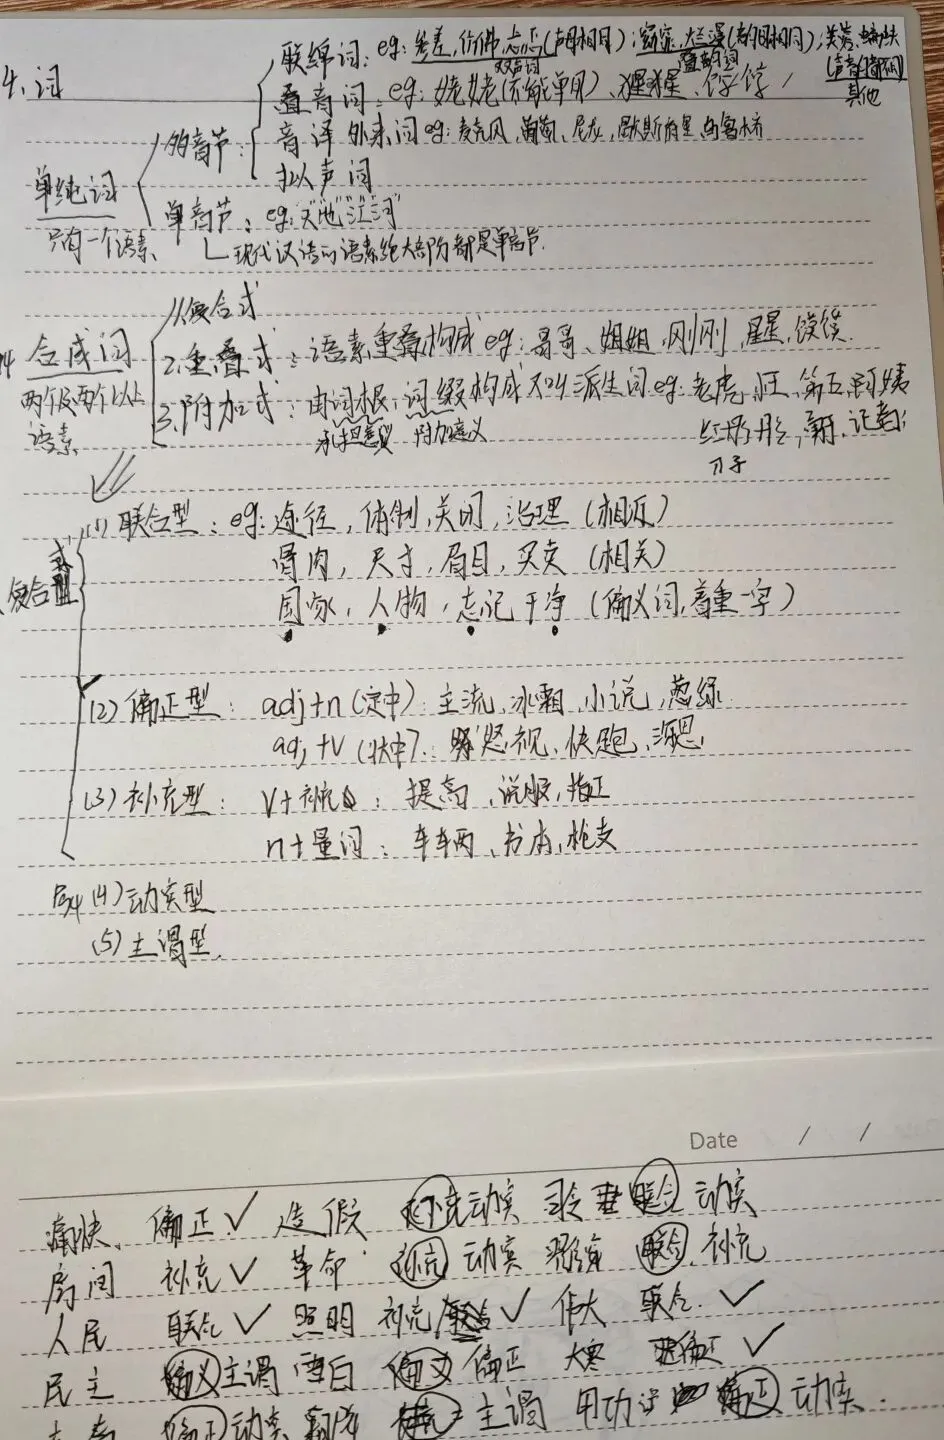 联绵词：eg：参差，仿佛，忐忑（声母相同）；窈窕，烂漫（韵母相同）；芙蓉、蝴蝶
双声词 叠韵词 其他
4、词
叠音词：eg：姥姥（不能单用）、猩猩、饽饽
多音节： 音译外来词 eg：麦克风，葡萄，尼龙，歇斯底里，乌鲁木齐
拟声词
单纯词 单音节：eg："天""地""江""河"
只有一个语素 现代汉语的语素绝大部分都是单音节.
1.复合式
合成词 2.重叠式：语素重叠构成 eg：哥哥、姐姐、刚刚，星星，馍馍
两个及两个以上 3.附加式：由词根，词缀构成又叫派生词 eg：老虎，第五，阿姨
语素 承担意义 附加意义 红彤彤，记者；
刀子
（1）联合型：eg：途径，体制，关闭，治理（相近）
复合式 骨肉，尺寸，眉目，买卖（相关）
国家，人物，忘记，干净（偏义词，着重一字）
（2）偏正型：adj+n（定中）：主流，冰箱，小说，葱绿
adj+v（状中）：怒视、快跑、深思
（3）补充型：v+补充：提高，说服，指正
n+量词：车辆、书本，枪支
（4）动宾型
（5）主谓型
Date / /
痛快 偏正✓ 造假 补充 动宾 司令 联合 动宾
房间 补充✓ 革命 补充 动宾 联合 补充
人民 联合✓ 照明 补充 ✓ 伟大 联合 ✓
民主 偏义 主谓 雪白 偏义 偏正 大寒 偏正 ✓
偏正 动宾 主谓 用功 偏正 动宾